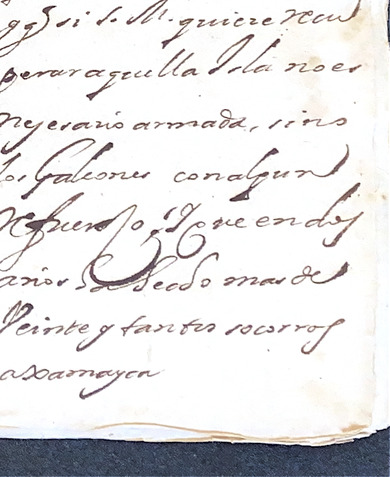 qͤ si S. M. quiere recu
perar aquella Isla no es
nesesario armada, sino
los Galeones con algun
Refuerso, y que en dos
años ha hecho mas de
Veinte y tantos socorros
a Xamayca